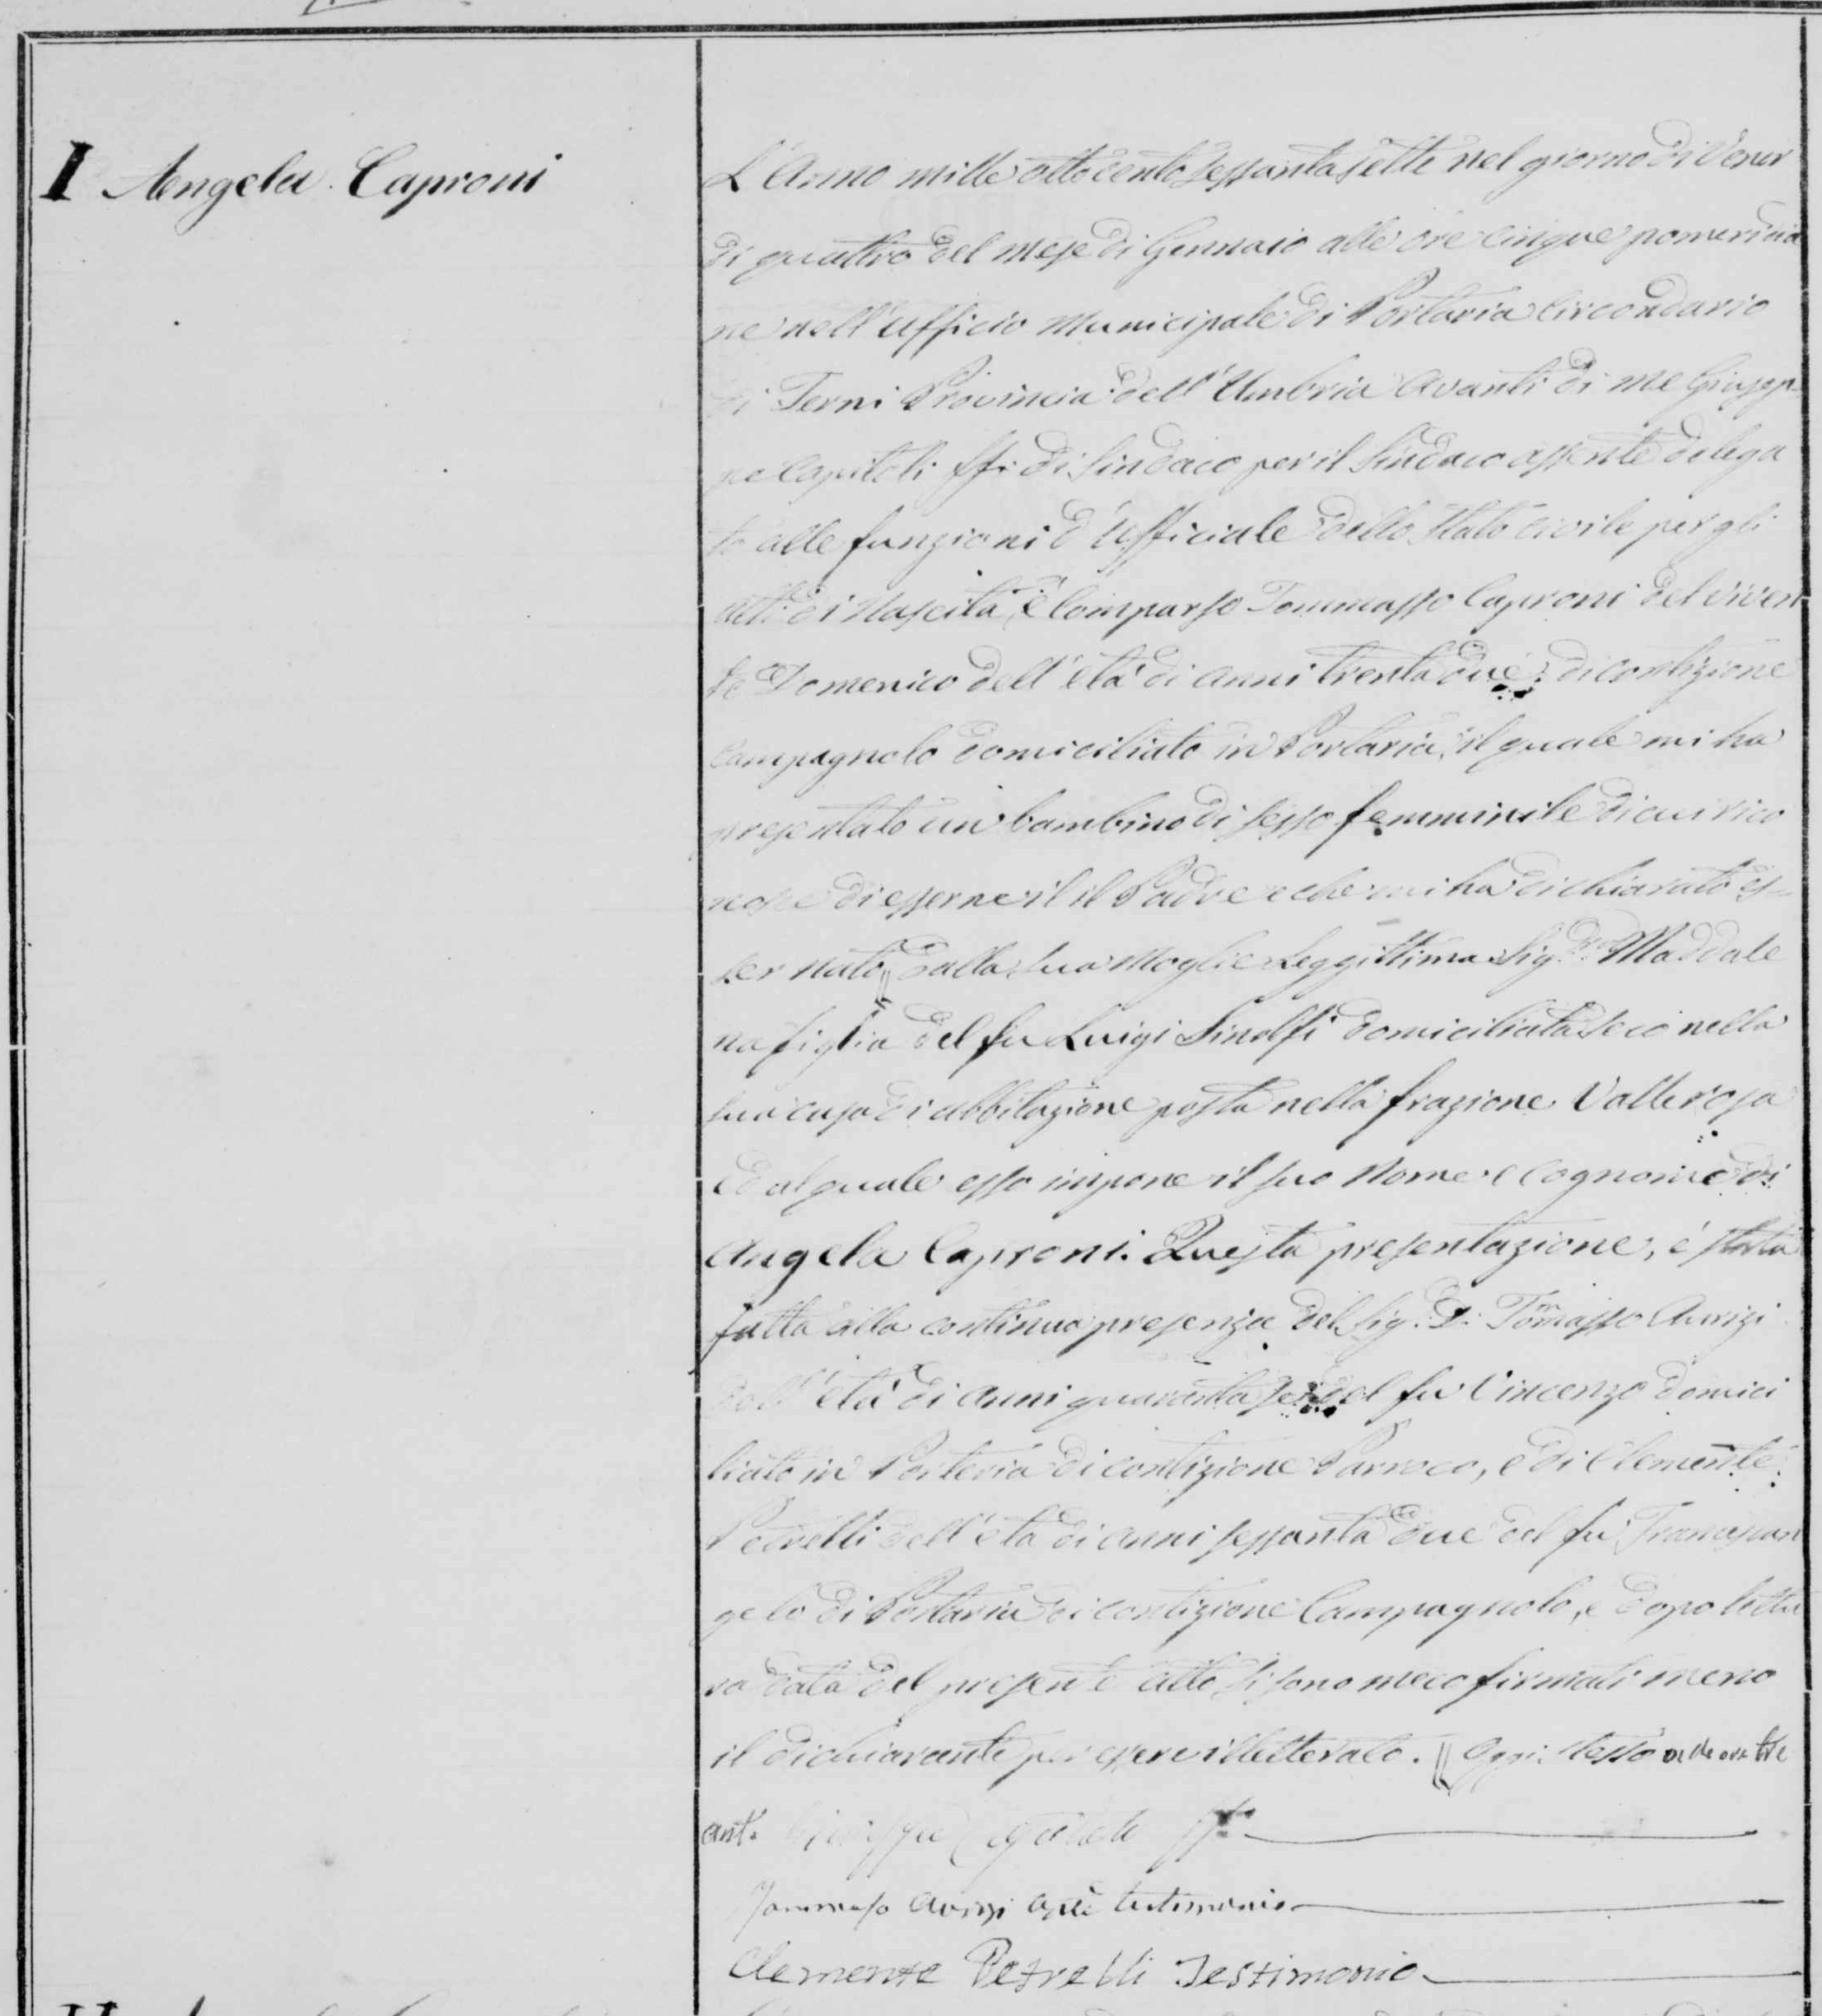 I Angela Caproni
L'Anno mille ottocento sessanta sette nel giorno di Vener
di quattro del mese di Gennaio alle ore cinque pomeridia
ne nell'Ufficio Municipale di Portaria Circondario
di Terni Provincia dell'Umbria avanti di me Giusep
pe Capitoli ff. di Sindaco per il Sindaco assente delega
to alle funzioni d'Ufficiale dello Stato civile per gli
atti di Nascita, è Comparso Tommasso Caproni del viven
te Domenico dell'età di anni trentadue: di contizione
Campagnolo domiciliato in Portaria, il quale mi ha
presentato un bambino di sesso femminile di cui rico
nosce di esserne il il Padre e che mi ha dichiarato es-
ser nato // dalla sua Moglie Leggittima Sig.ra Maddale
na figlia del fu Luigi Sinolfi domiciliata seco nella
sua casa di abbitazione posta nella frazione Valle rosa
Ed al quale esso impone il suo Nome e Cognome di
Angela Caproni. Questa presentazione, è stata
fatta alla continua presenza del Sig. D. Tommasso Aurizi
dell'età di anni quaranta sei del fu Vincenzo domici
liato in Porteria di contizione Parroco, e di Clemente
Petrelli dell'età di anni sessanta due del fu Francescan
gelo di Portaria di contizione Campagnolo, e dopo lettu
ra data del presente atto si sono meco firmati meno
il dichiarante per essere illetterato. // Oggi stesso alle ore tre
ant. Giuseppe Capitoli ff.
Tommaso Aurizi testimonio
Clemente Petrelli Testimonio